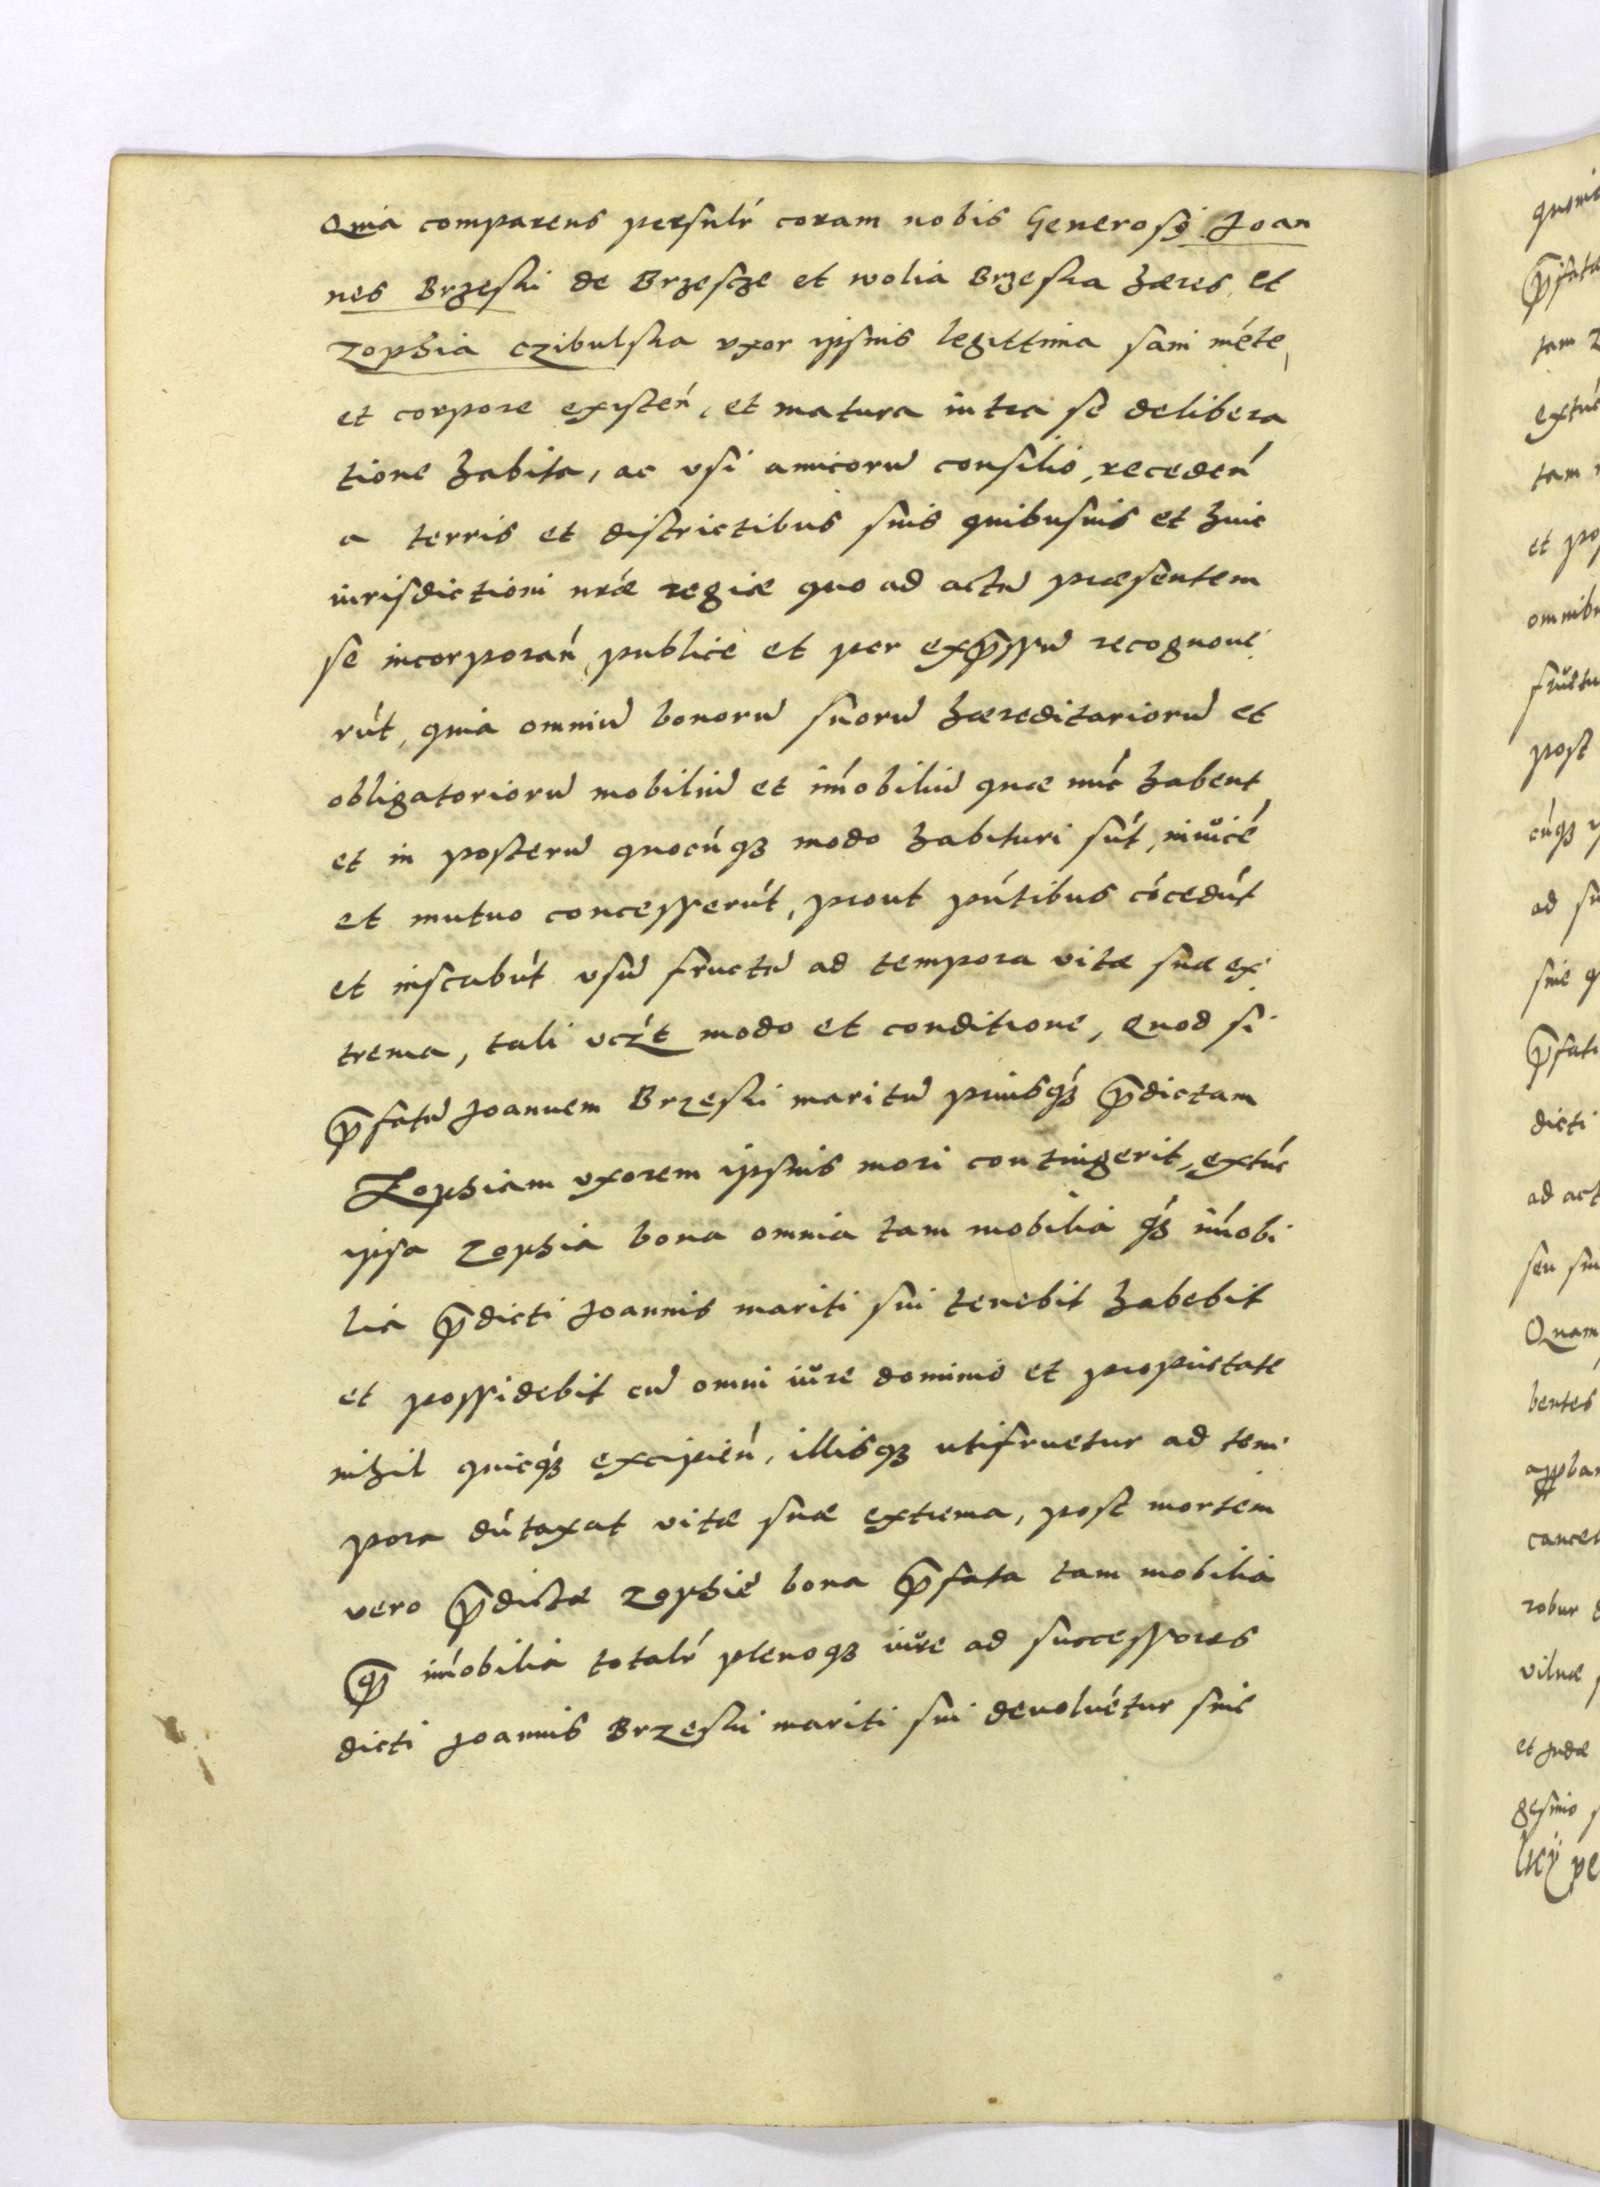 Quia comparens persnlr coram nobis Generosi Joan
nes Brzeski de Brzescze et wolia Brzeska hæres, et
Zophia czibulska vxor ipsius legittima sani méte,
et corpore existen, et matura intra se delibera
tione habita, ac vsi amicoru consilio, receden
a terris et districtibus suis quibusuis et huic
iurisdictioni nræ regiæ quo ad actu præsentem
se incorporan, publice et per expssu recognoue
rut, quia omniu bonoru suoru hæreditarioru et
obligatorioru mobiliu et imobiliu quæ nuc habent
et in posteru quocunqȝ modo habituri sut, inuice
et mutuo concesserut, prout pntibus cocedut
et inscribut vsu fructu ad tempora vitæ suæ ex
trema, tali vczt modo et conditione, quod si
pfatu Joannem Brzeski maritu priusqȝ pdictam
Zophiam vxorem ipsius mori contingerit, extuc
ipsa Zophia bona omnia tam mobilia qȝ imobi
lia pdicti Joannis mariti sui tenebit habebit
et possidebit cu omni iure dominio et proprietate
nihil quicqȝ excipien, illisqȝ utifruetur ad tem
pora dutaxat vitæ suæ extrema, post mortem
vero pdictæ Zophiæ bona pfata tam mobilia
q imobilia totalr plenoqȝ iure ad successores
dicti Joannis Brzeski mariti sui deuoluetur sine
post
dicti
ad act
Quam
bentes
robur